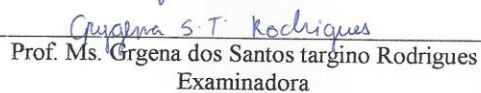 Grygena S. T. Rodrigues
Prof. Ms. Grgena dos Santos targino Rodrigues
Examinadora